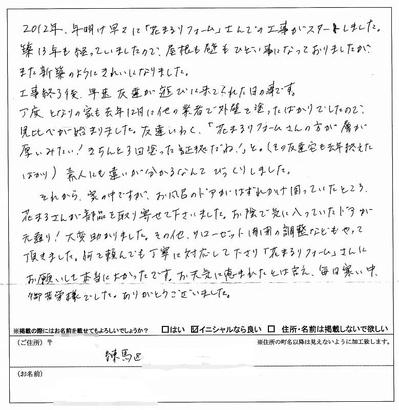 2012年、年明け早々に「花まるリフォーム」さんでの工事がスタートしました。
築13年も経っていましたので、屋根も壁もひどい事になっておりましたが、
また新築のようにきれいになりました。
工事終了後、早速 友達が遊びに来てくれた日の事です。
丁度 となりの家も去年12月に他の業者で外壁を塗ったばかりでしたので、
見比べが始まりました。友達いわく、「花まるリフォームさんの方が膚が
厚いみたい！きちんと3回塗った証拠だね！」と。（その友達宅も去年終えた
ばかり）素人にも違いが分かるなんてびっくりしました。
それから、家の中ですが、お風呂のドアがはずれかけ困っていたところ、
花まるさんが部品を取り寄せて下さいました。お陰で気に入っていたドアが
元通り！大変助かりました。その他、クローゼット開閉の調整などもやって
頂きました。何を頼んでも丁寧に対応して下さり「花まるリフォーム」さんに
お願いして本当によかったです。お天気に恵まれたとは言え、毎日寒い中、
御苦労様でした。ありがとうございました。
※掲載の際にはお名前を載せてもよろしいでしょうか？ □はい ☑イニシャルなら良い □ 住所・名前は掲載しないで欲しい
（ご住所）〒 ※住所の町名以降は見えないように加工致します。
練馬区
（お名前）